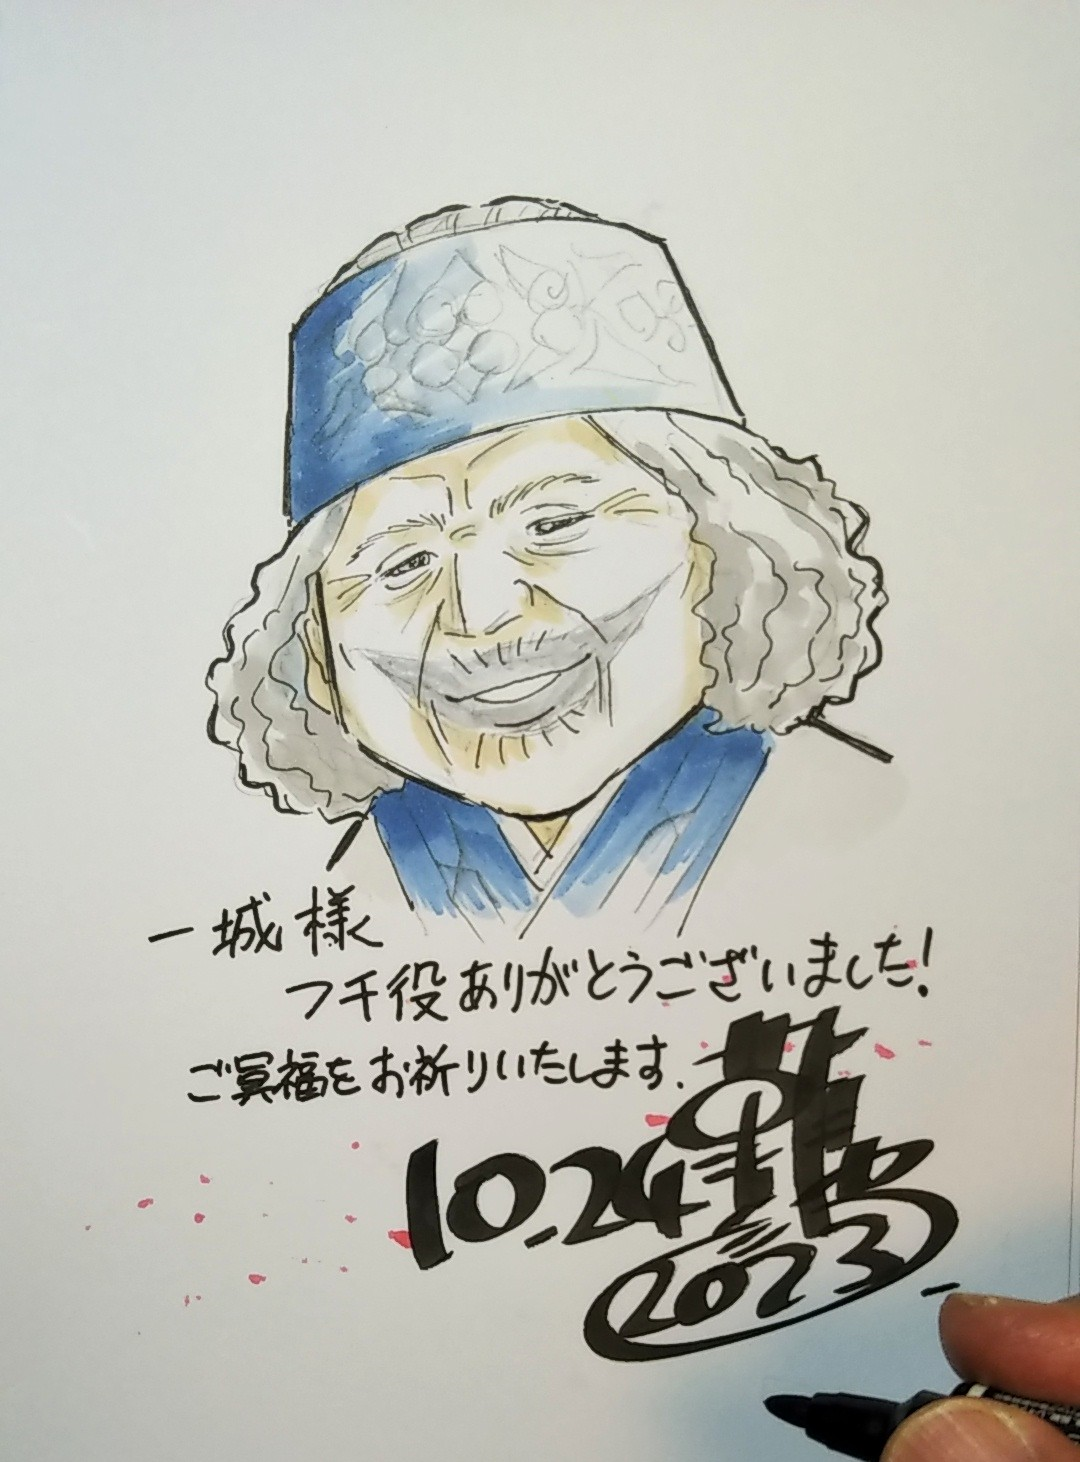 一城様
フチ役ありがとうございました!
ご冥福をお祈りいたします.
10.24
2023